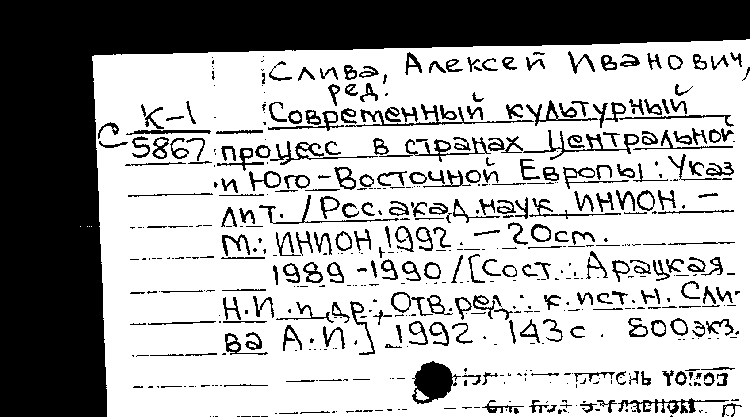 Слива, Алексей Иванович,
ред.
К-1
Современный культурный
С 5867
процесс в странах Центральной
и Юго-Восточной Европы: Указ
лит. / Рос. акад. наук, ИНИОН. –
М.: ИНИОН, 1992. – 20 cm.
1989-1990 / [Сост.: Арацкая
Н.И. и др.; Отв. ред.: к. ист. н. Сли-
ва А.И.] 1992. 143 с. 800 экз.
перечень томов
см. под заглавном